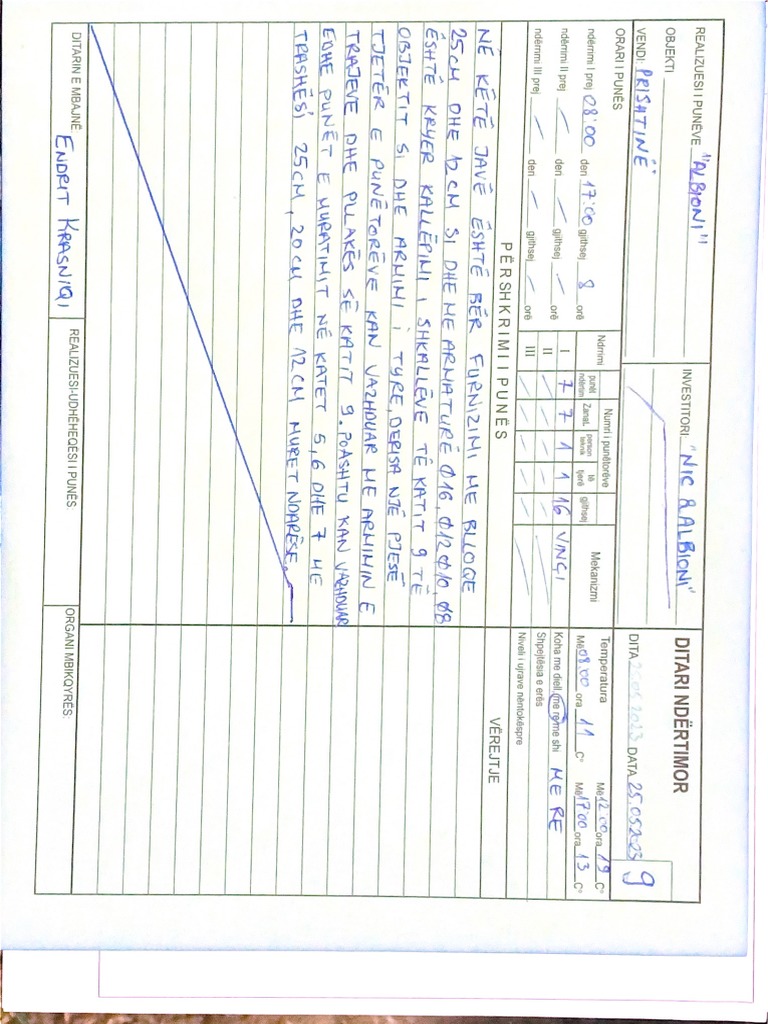 REALIZUESI I PUNËVE "ALBIONI"
INVESTITORI: "NIC & ALBIONI"
DITARI NDËRTIMOR
9
OBJEKTI
VENDI: PRISHTINË
DITA DATA 25.05.2023
ORARI I PUNËS
ndërrimi I prej 08:00 deri 17:00 gjithsej 8 orë
ndërrimi II prej / deri / gjithsej / orë
ndërrimi III prej / deri / gjithsej / orë
Ndrrimi
Numri i punëtorëve
Mekanizmi
punët ndërtim
Zanat.
person teknik
të tjerë
gjithsej
I 7 7 1 1 16 VINÇI
II / / / / /
III / / / / /
Temperatura
Më 08:00 ora 11 C°
Më 12:00 ora 19 C°
Më 17:00 ora 13 C°
Koha me diell, me re, me shi ME RE
Shpejtësia e erës
Niveli i ujrave nëntokëspre
PËRSHKRIMI I PUNËS
VËREJTJE
NË KËTË JAVË ËSHTË BËR FURNIZIMI ME BLLOQE
25CM DHE 12CM SI DHE ME ARMATURË Ø16, Ø12 Ø10, Ø8
ËSHTË KRYER KALLËPIMI I SHKALLËVE TË KATIT 9 TË
OBJEKTIT SI DHE ARMIMI I TYRE, DERISA NJË PJESË
TJETËR E PUNËTORËVE KAN VAZHDUAR ME ARMIMIN E
TRAJEVE DHE PLLAKËS SË KATIT 9. POASHTU KAN VAZHDUAR
EDHE PUNËT E MURATIMIT NË KATET 5,6 DHE 7 ME
TRASHËSI 25CM, 20CM DHE 12CM MURET NDARËSE.
DITARIN E MBAJNË:
ENDRIT KRASNIQI
REALIZUESI-UDHËHEQËSI I PUNËS
ORGANI MBIKQYRËS: